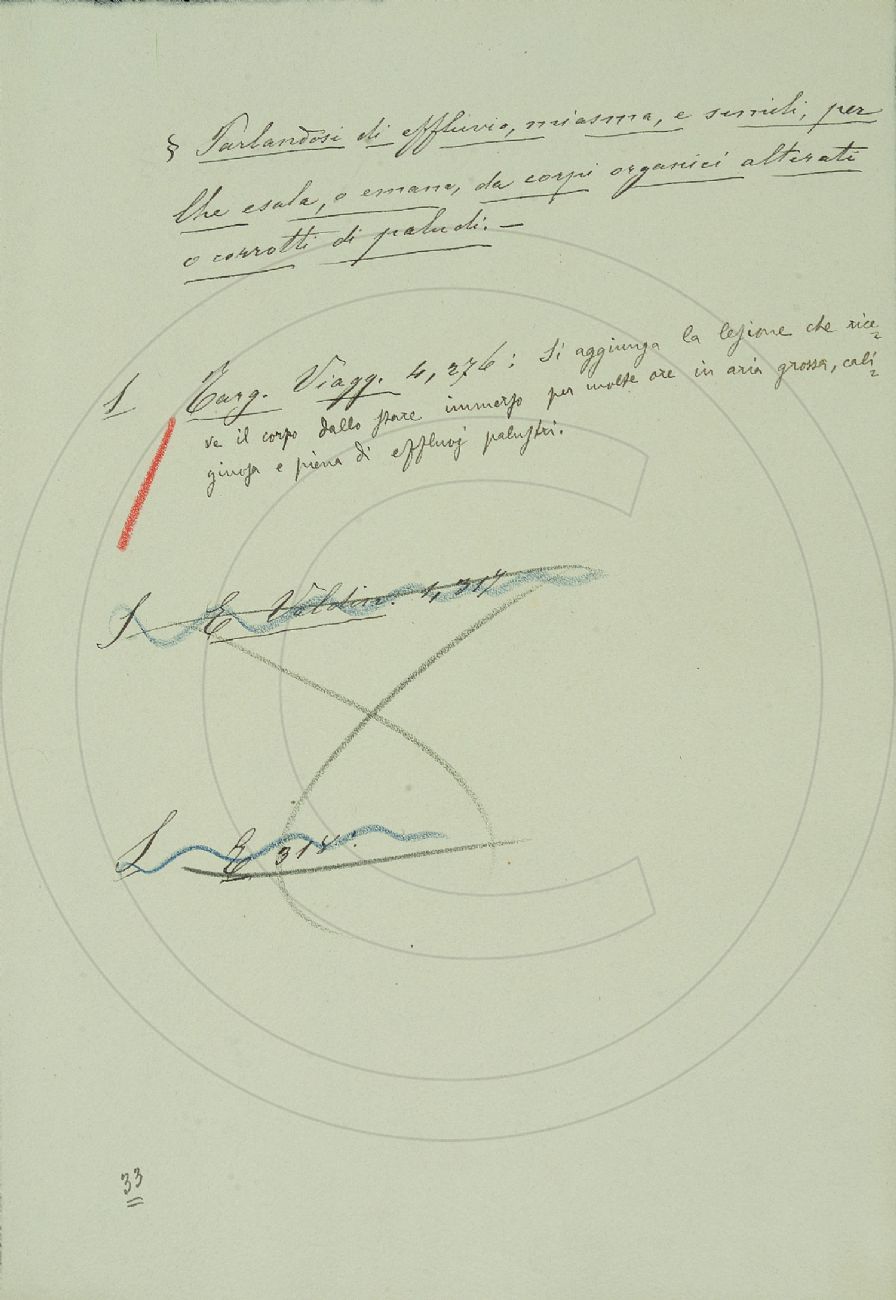 § Parlandosi di effluvio, miasma, e simili, per
Che esala, o emana, da corpi organici alterati
o corrotti di paludi. —
S Targ. Viagg. 4, 276: Si aggiunga la lesione che rice=
ve il corpo dallo stare immerso per molte ore in aria grossa, cali=
ginosa e piena di effluvj palustri.
S E Valdin. 1, 317
S E 318.
33